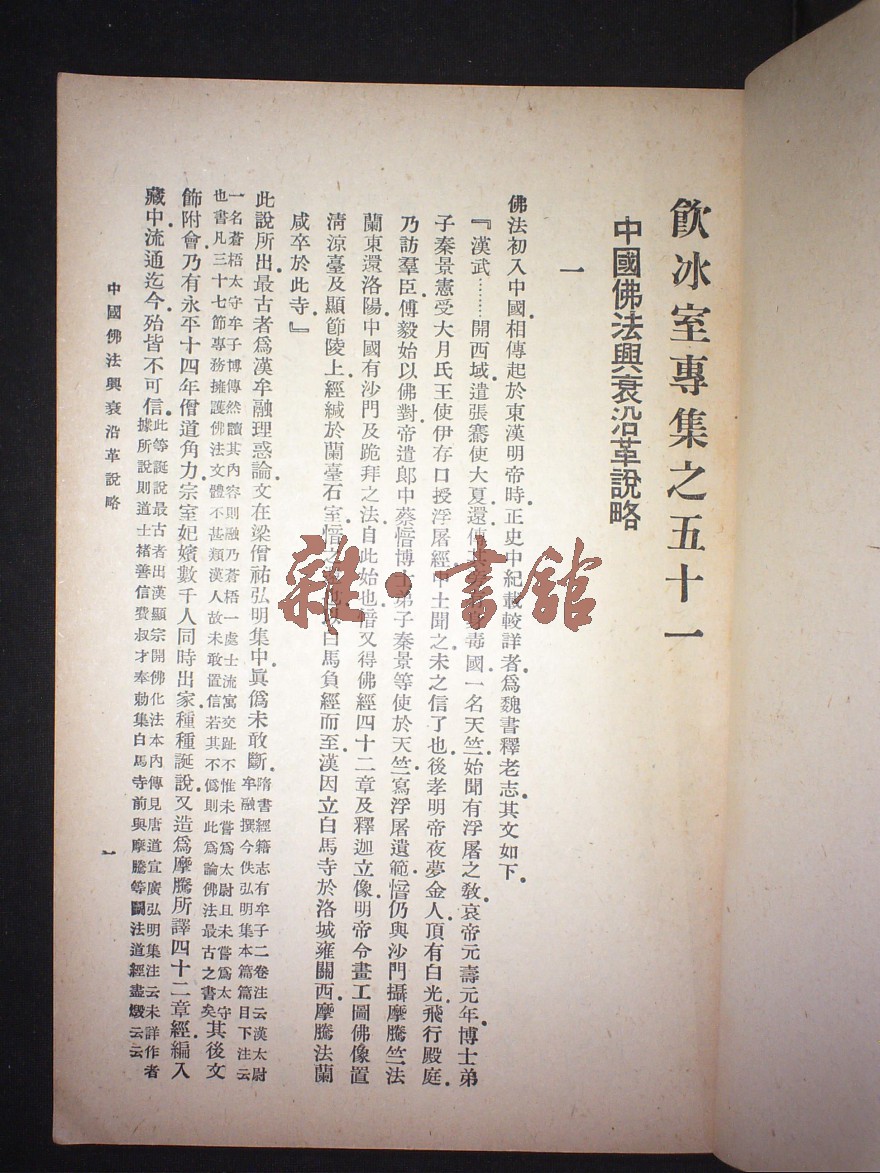 飲冰室專集之五十一
中國佛法興衰沿革說略
一
佛法初入中國相傳起於東漢明帝時正史中紀載較詳者爲魏書釋老志其文如下
『漢武………開西域遣張騫使大夏還傳其旁有身毒國一名天竺始聞有浮屠之敎哀帝元壽元年博士弟
子秦景憲受大月氏王使伊存口授浮屠經中土聞之未之信了也後孝明帝夜夢金人頂有白光飛行殿庭
乃訪羣臣傅毅始以佛對帝遣郎中蔡愔博士弟子秦景等使於天竺寫浮屠遺範愔仍與沙門攝摩騰竺法
蘭東還洛陽中國有沙門及跪拜之法自此始也愔又得佛經四十二章及釋迦立像明帝令畫工圖佛像置
淸涼臺及顯節陵上經緘於蘭臺石室愔之白馬負經而至漢因立白馬寺於洛城雍關西摩騰法蘭
咸卒於此寺』
此說所出最古者爲漢牟融理惑論文在梁僧祐弘明集中眞僞未敢斷隋書經籍志有牟子二卷注云漢太尉
牟融撰今佚弘明集本篇篇目下注云
一名蒼梧太守牟子博傳然讀其內容則融乃蒼梧一處士流寓交趾不惟未嘗爲太尉且未嘗爲太守
也書凡三十七節專務擁護佛法文體不甚類漢人故未敢置信若其不僞則此爲論佛法最古之書矣其後文
飾附會乃有永平十四年僧道角力宗室妃嬪數千人同時出家種種誕說又造爲摩騰所譯四十二章經編入
藏中流通迄今殆皆不可信此等誕說最古者出漢顯宗開佛化法本內傳見唐道宣廣弘明集注云未詳作者
據所說則道士褚善信費叔才奉勅集白馬寺前與摩騰等鬭法道經盡燬云云
中國佛法興衰沿革說略
一
雜·書館